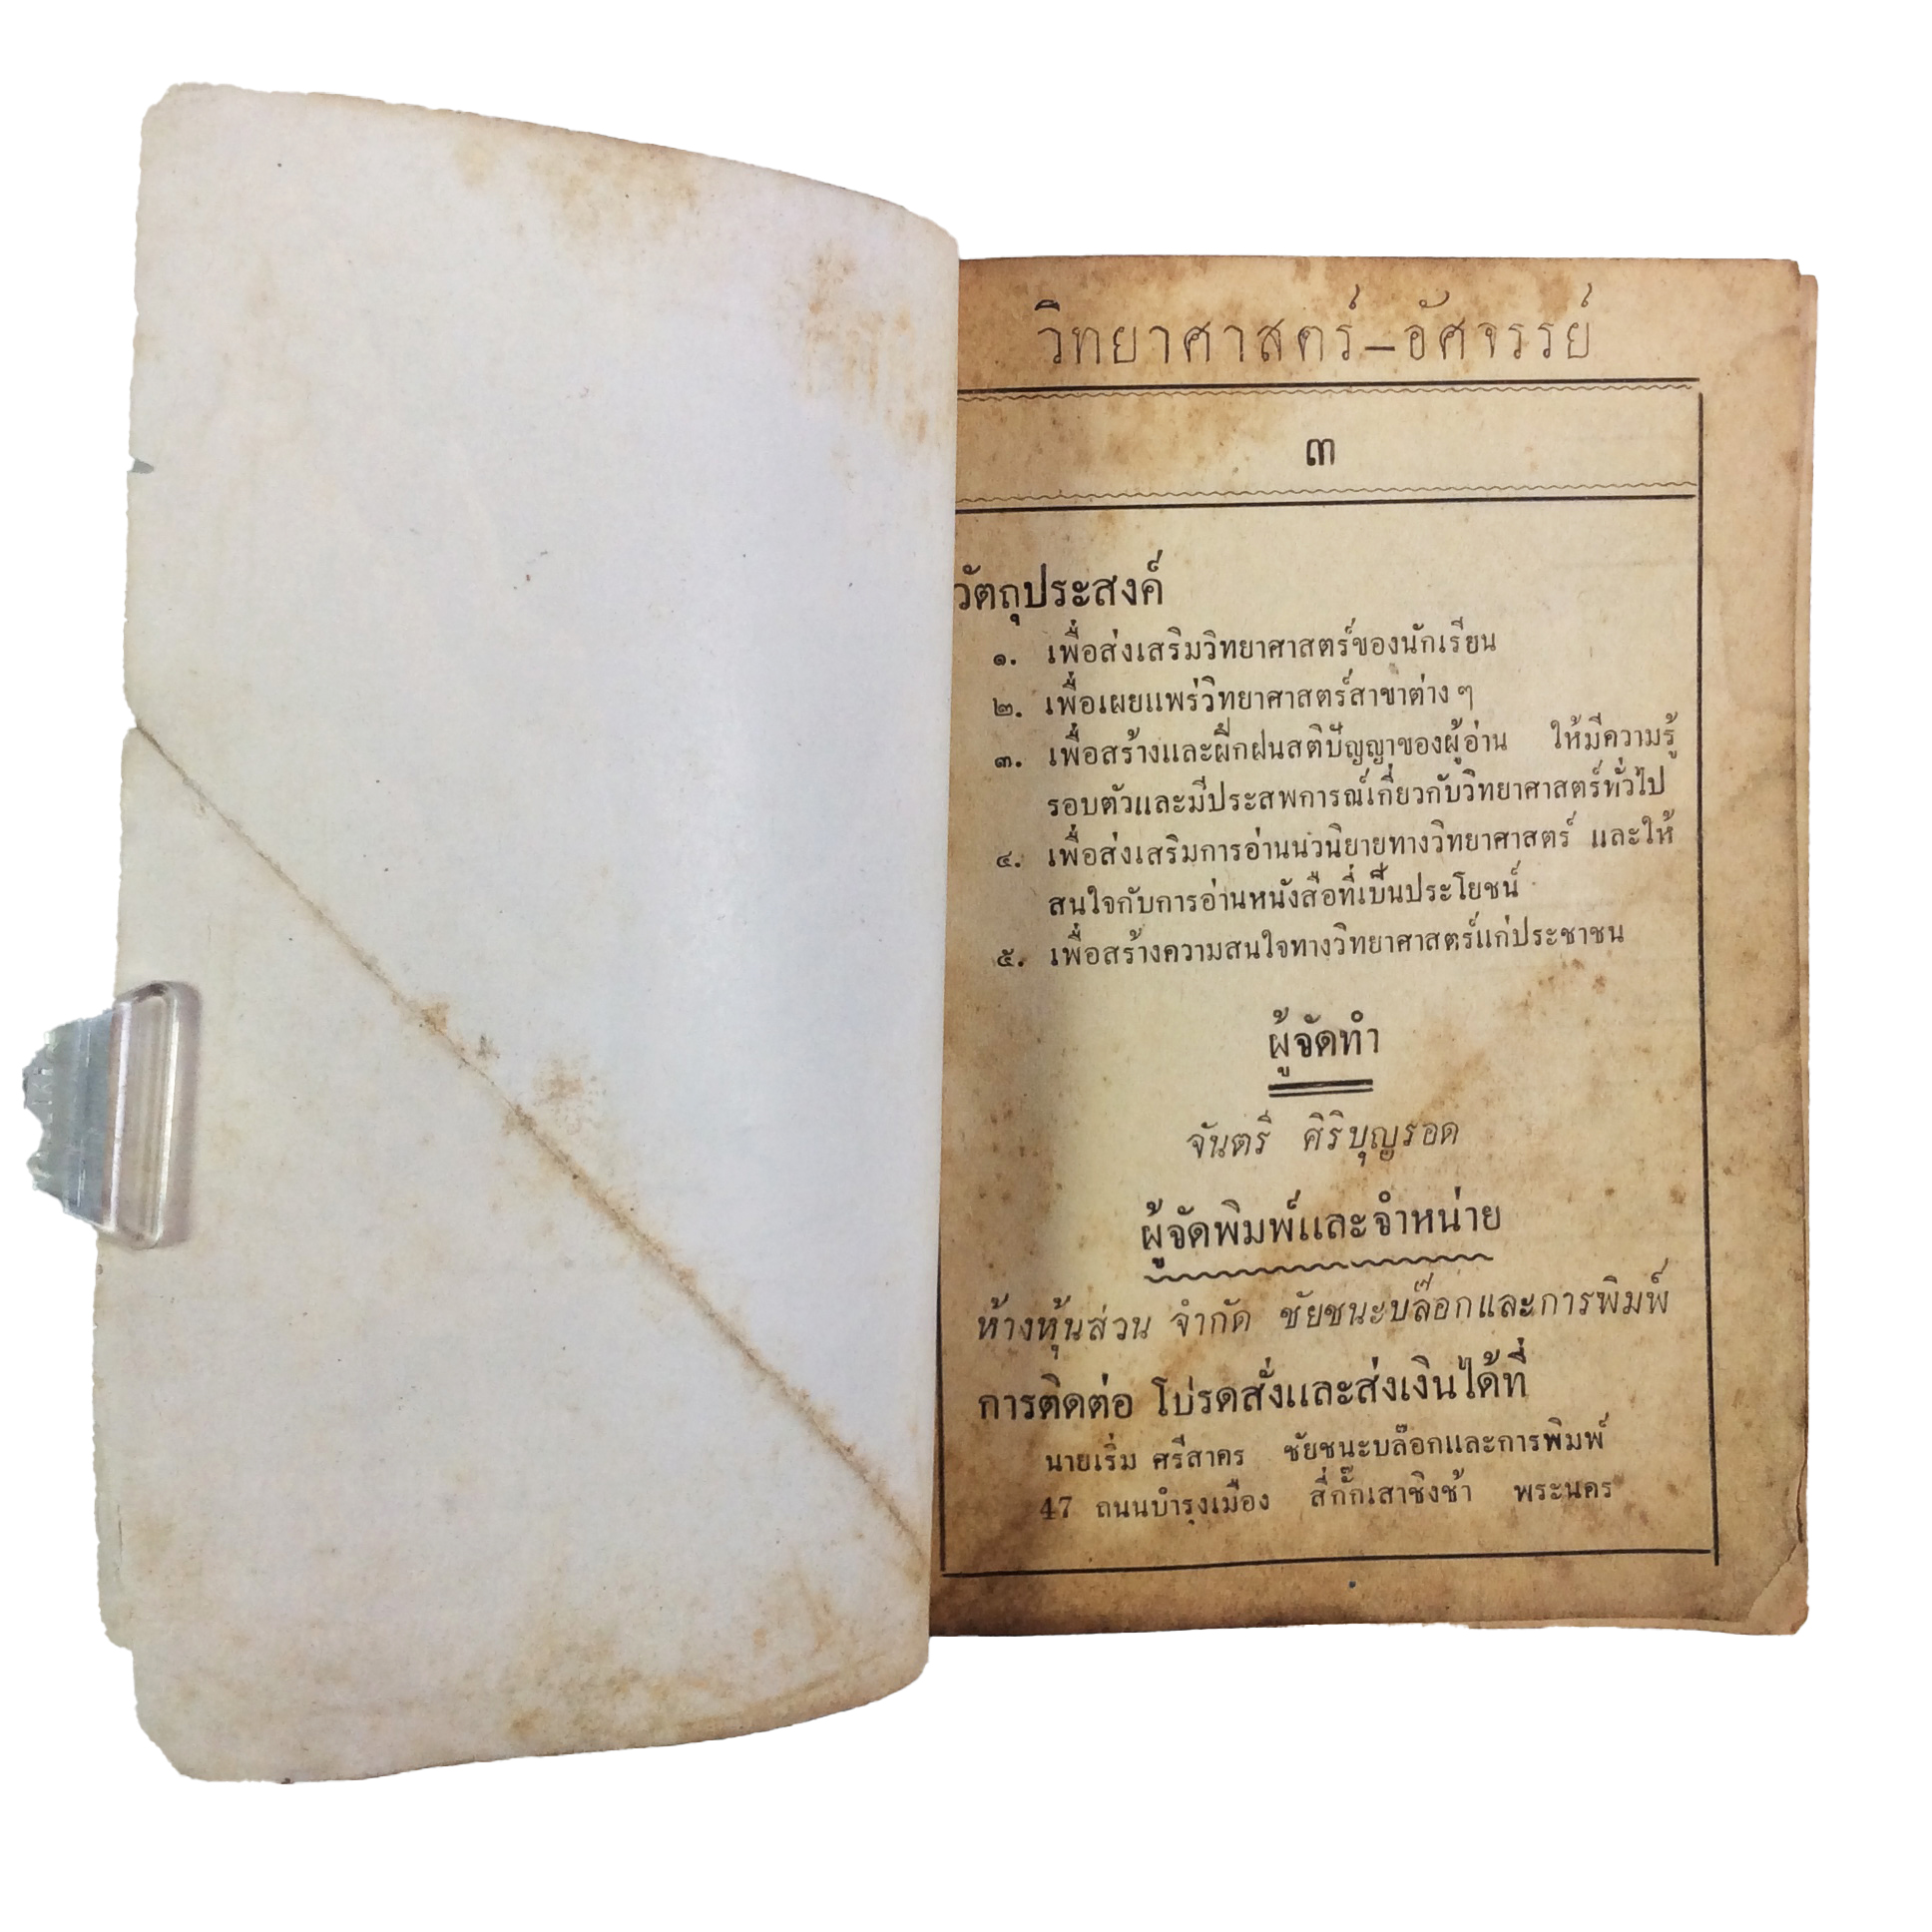 วิทยาศาสตร์-อัศจรรย์
๓
วัตถุประสงค์
๑. เพื่อส่งเสริมวิทยาศาสตร์ของนักเรียน
๒. เพื่อเผยแพร่วิทยาศาสตร์สาขาต่าง ๆ
๓. เพื่อสร้างและฝึกฝนสติปัญญาของผู้อ่าน ให้มีความรู้
รอบตัวและมีประสพการณ์เกี่ยวกับวิทยาศาสตร์ทั่วไป
๔. เพื่อส่งเสริมการอ่านนวนิยายทางวิทยาศาสตร์ และให้
สนใจกับการอ่านหนังสือที่เป็นประโยชน์
๕. เพื่อสร้างความสนใจทางวิทยาศาสตร์แก่ประชาชน
ผู้จัดทำ
จันตรี ศิริบุญรอด
ผู้จัดพิมพ์และจำหน่าย
ห้างหุ้นส่วน จำกัด ชัยชนะบล๊อกและการพิมพ์
การติดต่อ โปรดสั่งและส่งเงินได้ที่
นายเริ่ม ศรีสาคร ชัยชนะบล๊อกและการพิมพ์
47 ถนนบำรุงเมือง สี่กั๊กเสาชิงช้า พระนคร